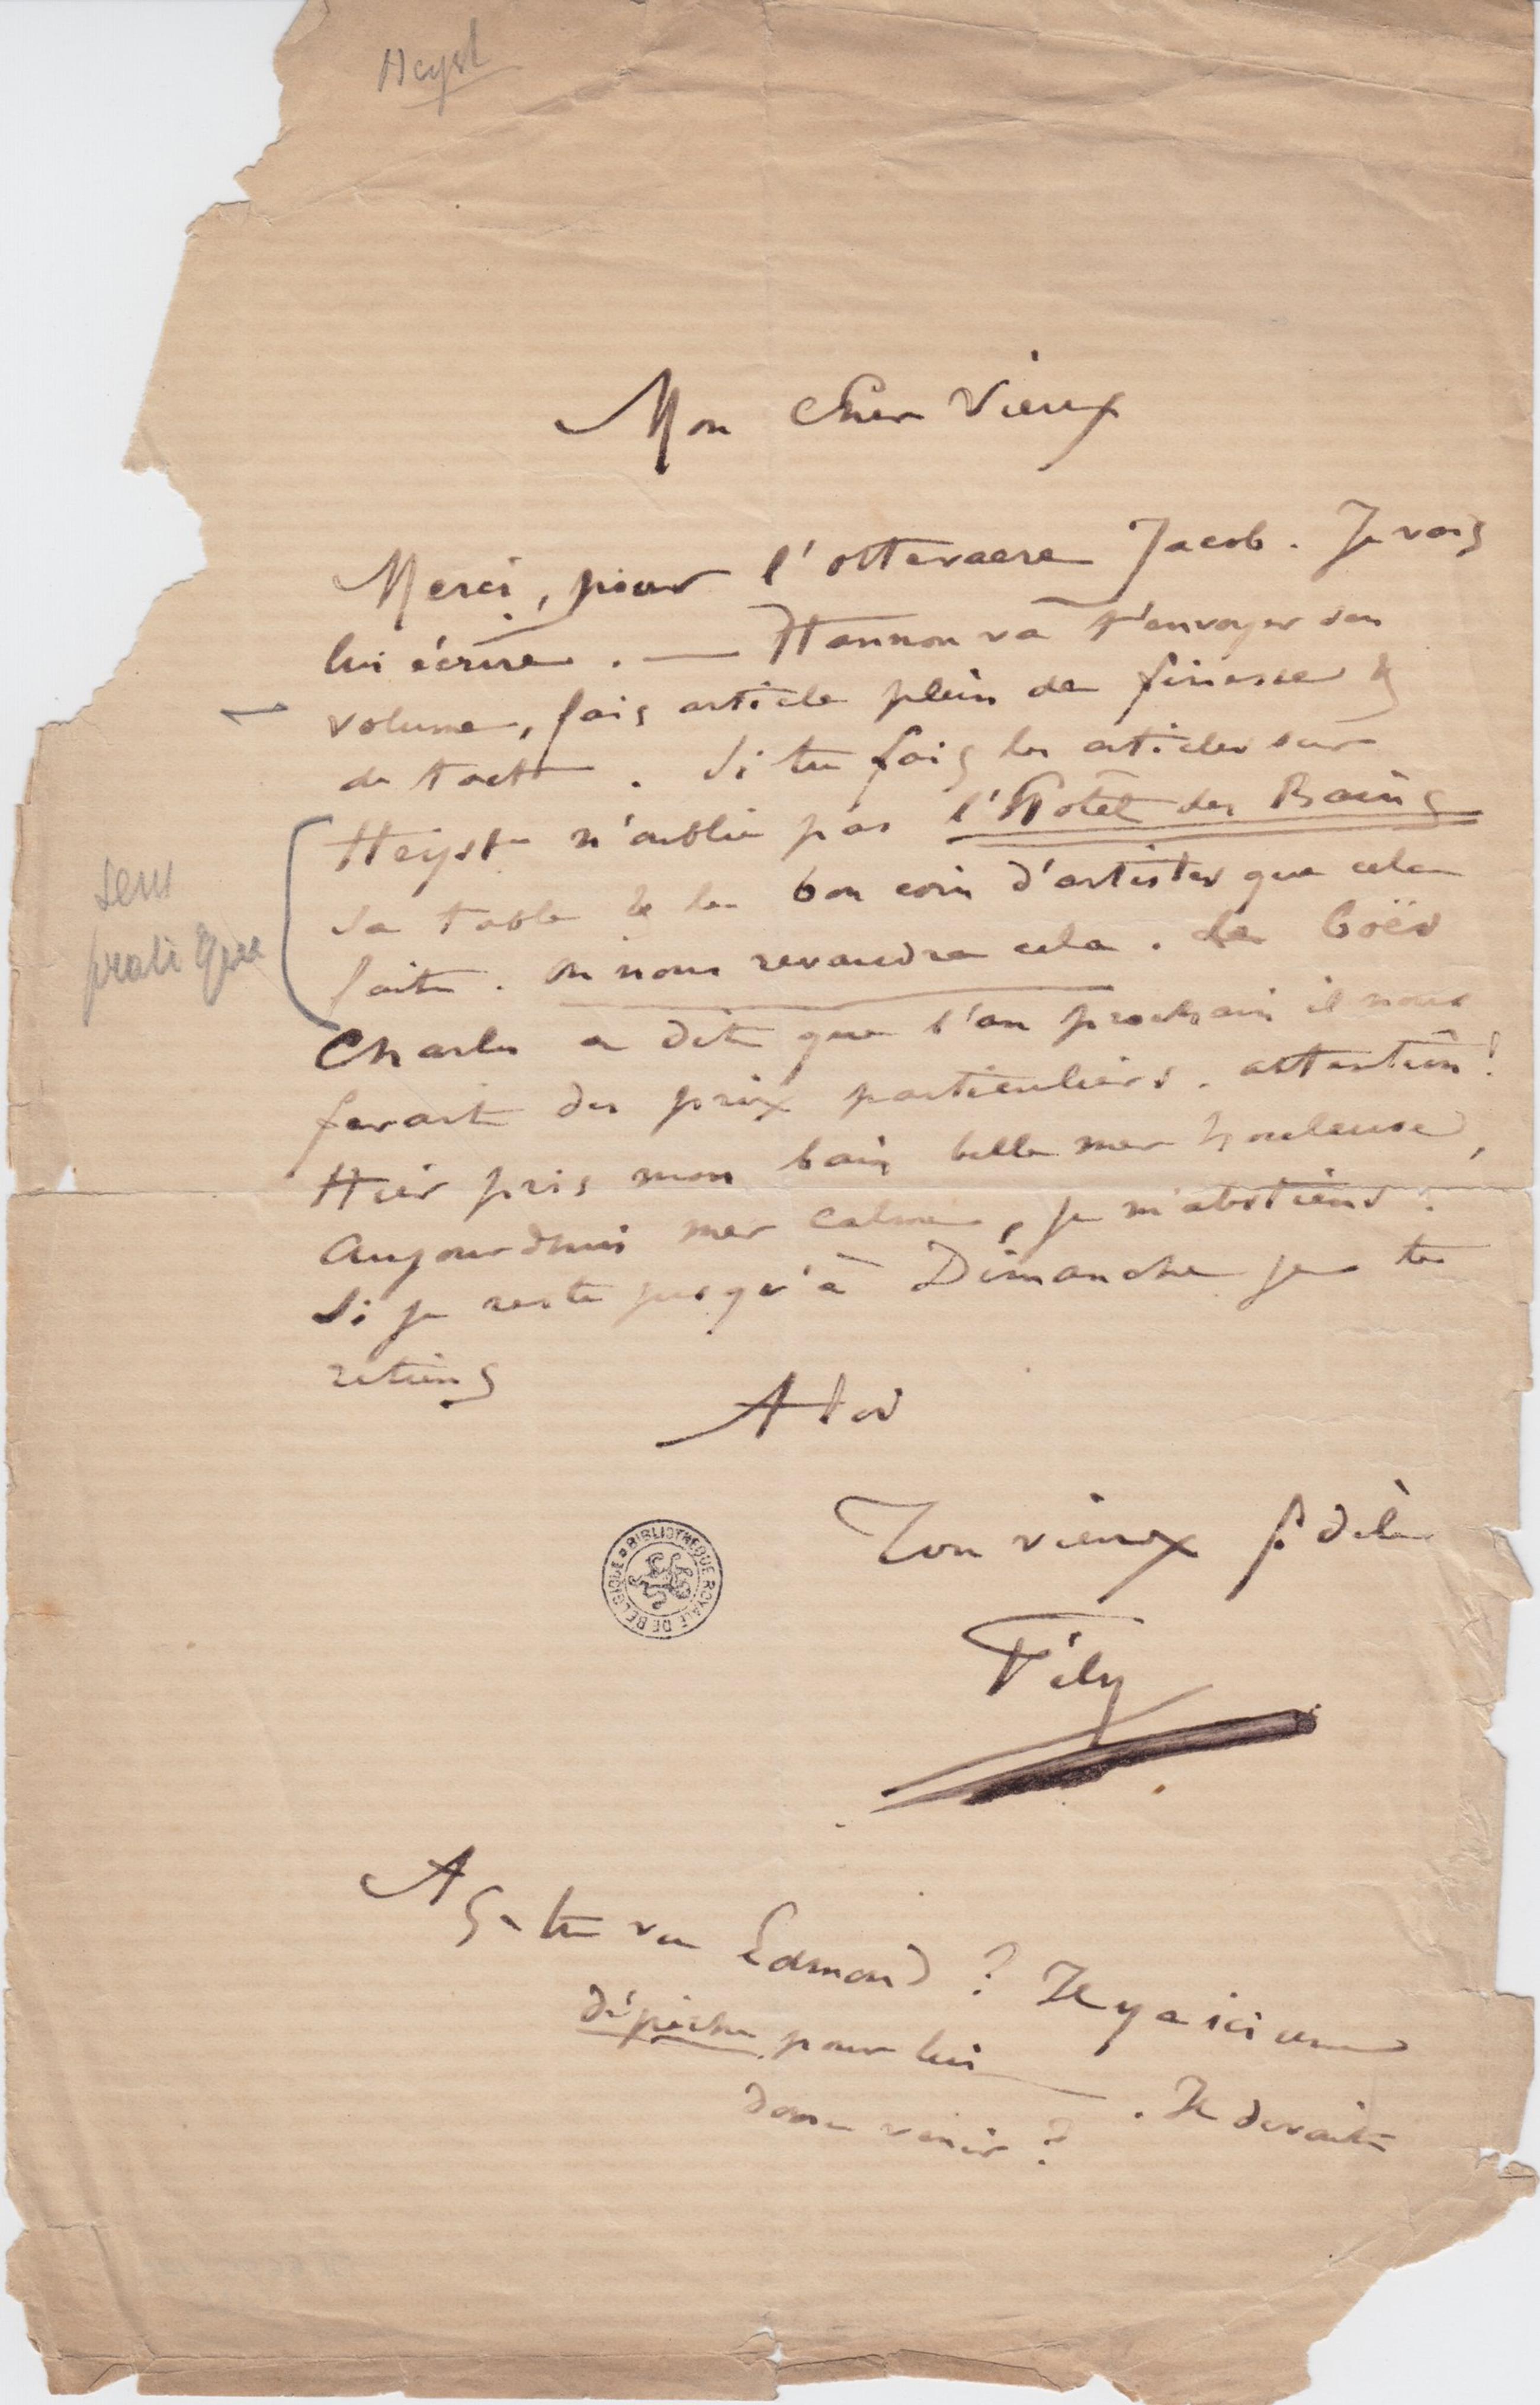 Heyst
Mon Cher Vieux
Merci, pour l'ottevaere Jacob. Je vais
lui écrire. — Hannon va t'envoyer son
volume, fais article plein de finesse &
de tact. Si tu fais les articles sur
Heyst n'oublie pas l'Hôtel des Bains
sa table & le bon coin d'artistes que cela
fait. On nous revaudra cela. Le boër
sens
pratique
Charles a dit que l'an prochain il nous
ferait des prix particuliers. attention!
Hier pris mon bain belle mer houleuse,
Aujourdhui mer calme, je m'abstiens.
Si je reste jusqu'à Dimanche je te
retiens
A toi
Ton vieux fidèle
Fély
BIBLIOTHEQUE ROYALE DE BELGIQUE
As-tu vu Edmond? Il y a ici une
dépêche pour lui. Il devait
donc venir?